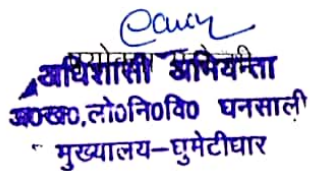 अधिशासी अभियन्ता
अ०ख०,लो०नि०वि० घनसाली
मुख्यालय-घुमेटीधार